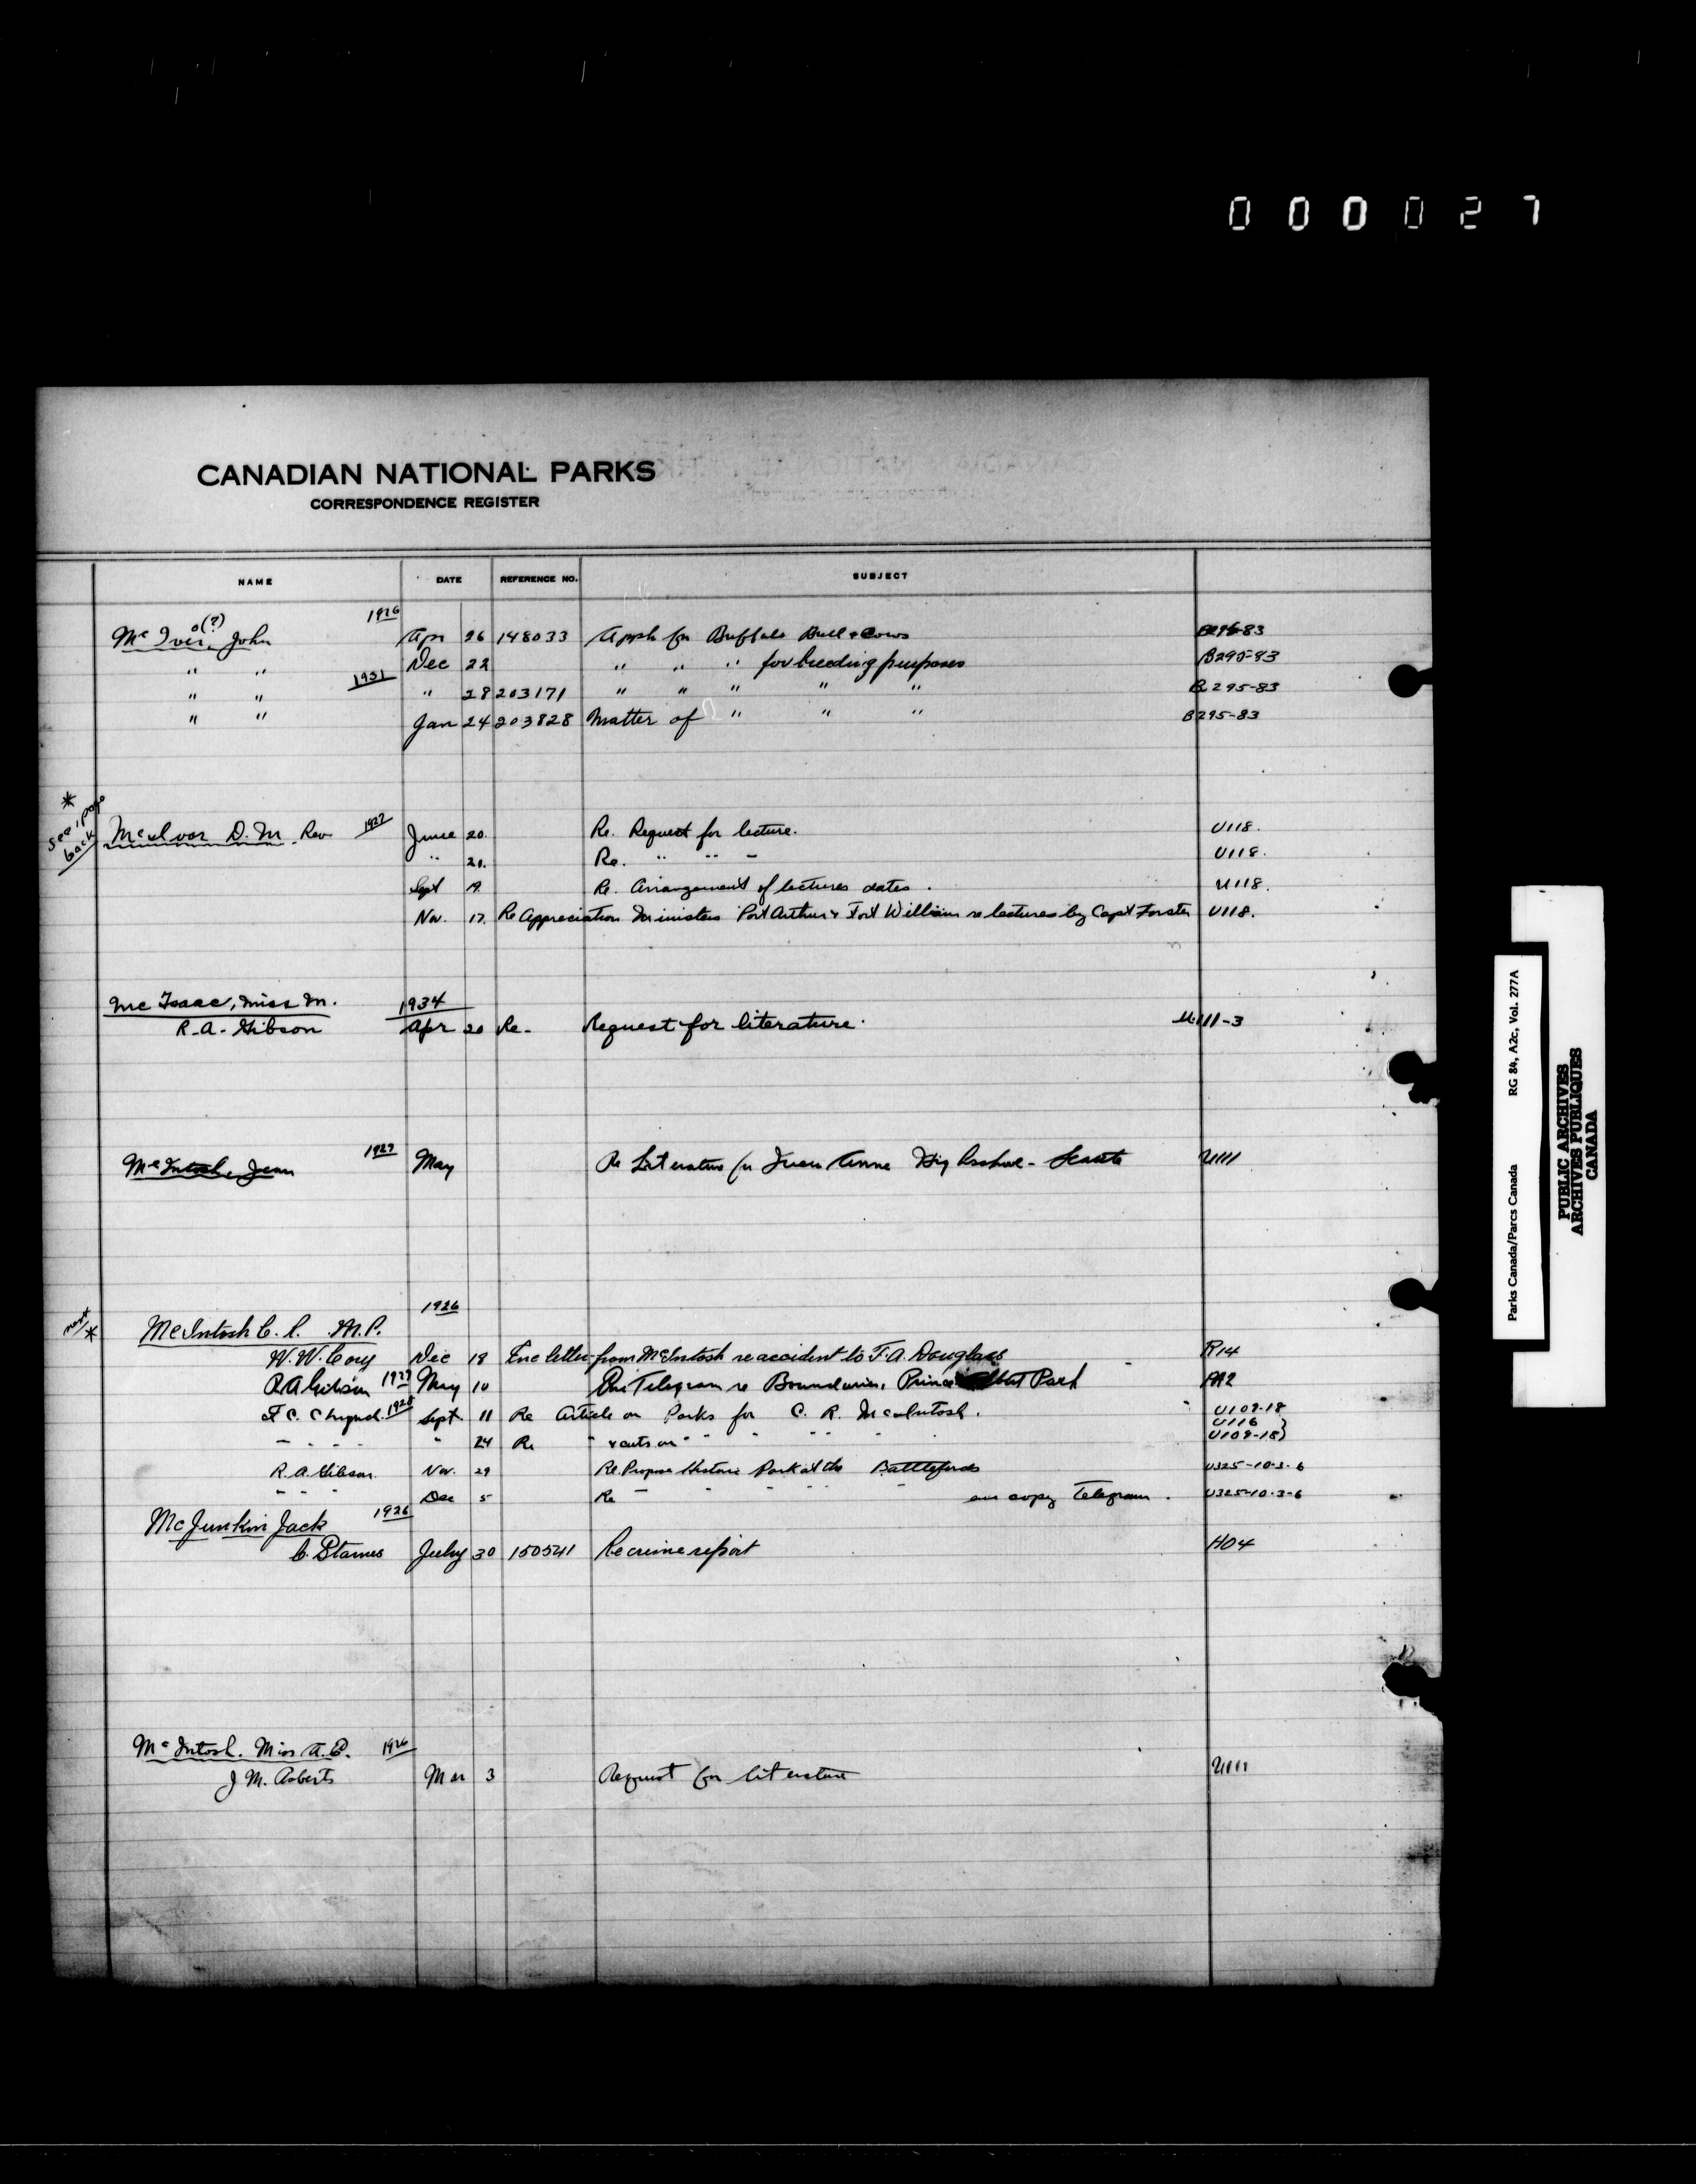 000027
CANADIAN NATIONAL PARKS
CORRESPONDENCE REGISTER
NAME DATE REFERENCE NO. SUBJECT
1926
o(?)
Mc Iver, John Apr 26 148033 Appln for Buffalo Bull & Cows B295-83
" " Dec 22 " " " for breeding purposes B295-83
1931
" " " 28 203171 " " " " " B295-83
" " Jan 24 203828 Matter of " " " B295-83
* see, page back
McIvor D. M. Rev 1927 June 20. Re. Request for lecture. U118.
" 21. Re. " " " U118.
Sept 19. Re. Arrangement of lectures dates. U118.
Nov. 17. Re Appreciation Ministers Port Arthur & Fort William re lectures by Capt U118.
Mc Isaac, Miss M. 1934
R. A. Gibson Apr 20 Re- Request for literature. U.111-3
McIntosh, Jean 1927 May Re Literature for Queen Anne High School - Seattle U111
1926
next *
McIntosh C. R. M.P.
W. W. Cory Dec 18 Enc letter from McIntosh re accident to F. A. Douglass R14
R A Gibson 1927 May 10 Telegram re Boundaries, Prince Albert Park PA2
F C C Lynch. 1928 Sept. 11 Re Article on Parks for C. R. McIntosh. U109-18
U116 }
" " " " 24 Re " & cuts on " " " " " U109-18}
R. A. Gibson. Nov. 29 Re. Propose Historic Park at the Battlefords U325-10-3-6
" " " Dec 5 Re " " " " " copy Telegram. U325-10-3-6
McJunkin Jack 1926
C. Starnes July 30 150541 Re crime report H04
McIntosh. Miss A. C. 1926
J M. Roberts Mar 3 Request for literature U111
Parks Canada/Parcs Canada RG 84, A2c, Vol. 277A
PUBLIC ARCHIVES
ARCHIVES PUBLIQUES
CANADA